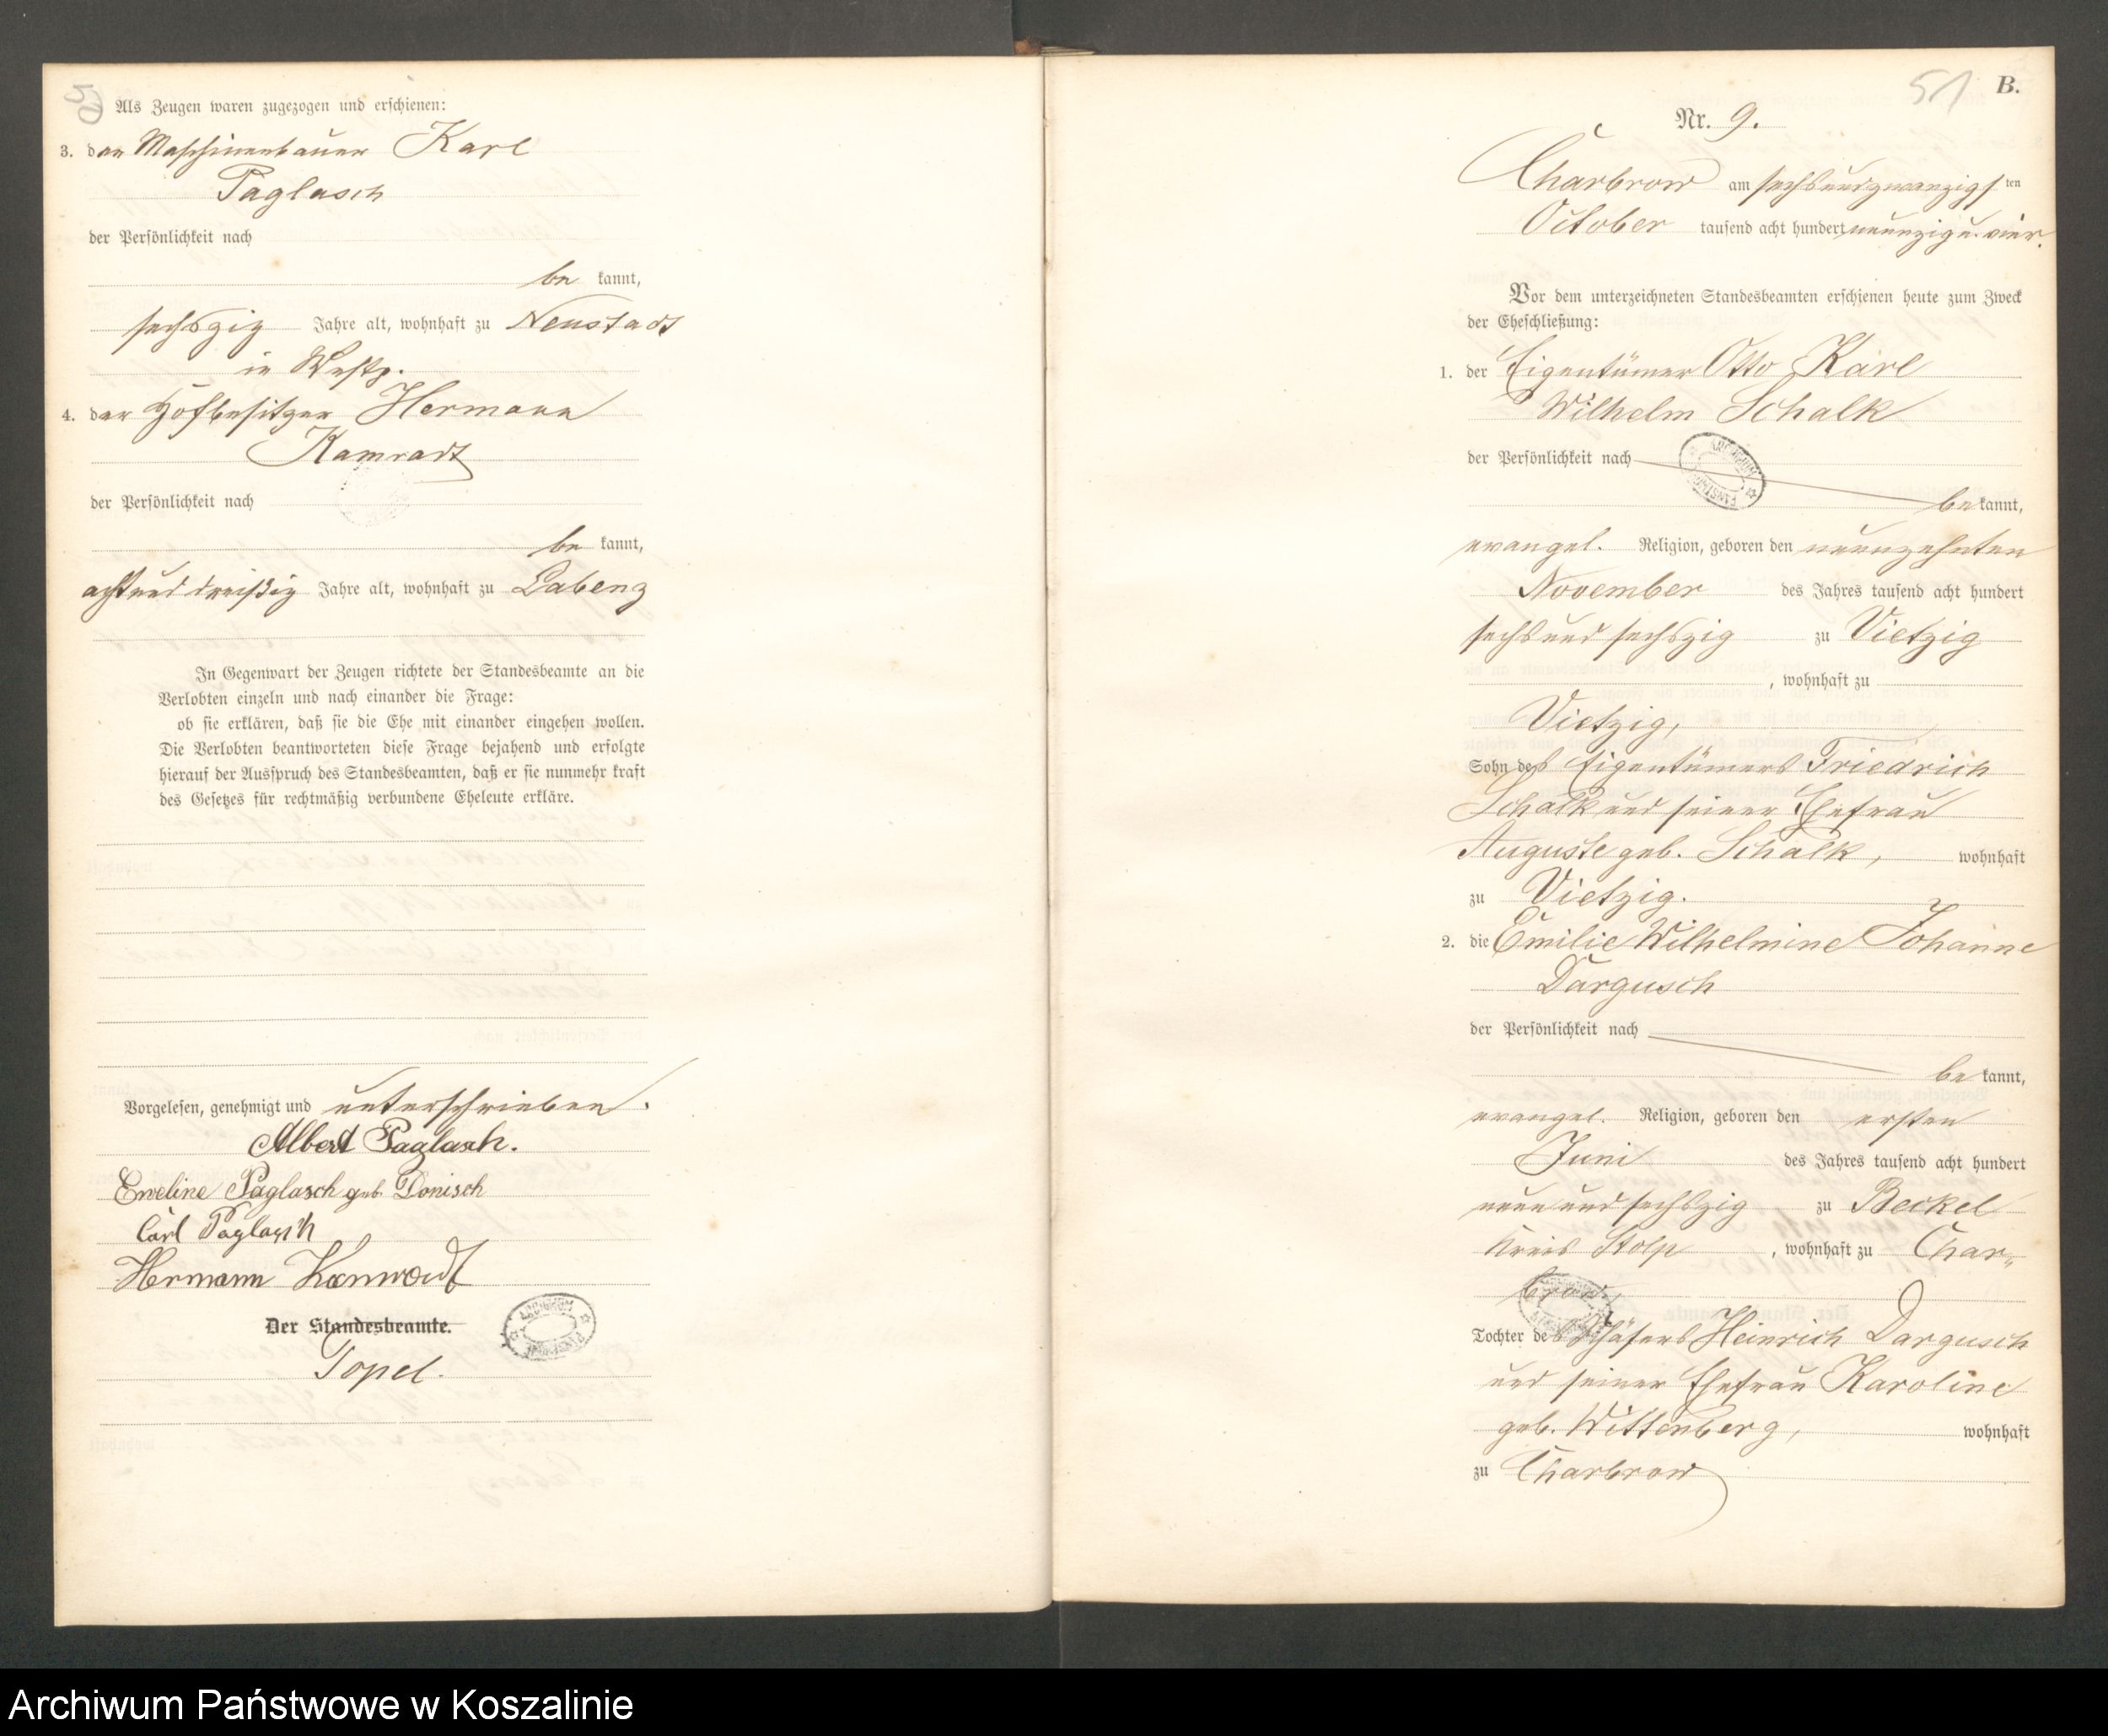 50
Als Zeugen waren zugezogen und erschienen:
3. der Maschinenbauer Karl
Paglasch
der Persönlichkeit nach
be kannt,
sechszig Jahre alt, wohnhaft zu Neustadt
in Westp.
4. der Hofbesitzer Hermann
Kamradt
der Persönlichkeit nach
be kannt,
achtund dreißig Jahre alt, wohnhaft zu Labenz
In Gegenwart der Zeugen richtete der Standesbeamte an die
Verlobten einzeln und nach einander die Frage:
ob sie erklären, daß sie die Ehe mit einander eingehen wollen.
Die Verlobten beantworteten diese Frage bejahend und erfolgte
hierauf der Ausspruch des Standesbeamten, daß er sie nunmehr kraft
des Gesetzes für rechtmäßig verbundene Eheleute erkläre.
Vorgelesen, genehmigt und unterschrieben.
Albert Paglasch.
Eveline Paglasch geb. Donisch
Carl Paglasch
Hermann Kamradt
Der Standesbeamte.
Topel.
51
B.
Nr. 9.
Charbrow am sechsundzwanzigsten
October tausend acht hundert neunzig u. vier.
Vor dem unterzeichneten Standesbeamten erschienen heute zum Zweck
der Eheschließung:
1. der Eigentümer Otto Karl
Wilhelm Schalk
der Persönlichkeit nach
be kannt,
evangel. Religion, geboren den neunzehnten
November des Jahres tausend acht hundert
sechs und sechszig zu Vietzig
, wohnhaft zu
Vietzig,
Sohn des Eigentümers Friedrich
Schalk und seiner Ehefrau
Auguste geb. Schalk, wohnhaft
zu Vietzig.
2. die Emilie Wilhelmine Johanne
Dargusch
der Persönlichkeit nach
be kannt,
evangel. Religion, geboren den ersten
Juni des Jahres tausend acht hundert
neun und sechszig zu Beckel
Kreis Stolp, wohnhaft zu Char-
brow,
Tochter des Schäfers Heinrich Dargusch
und seiner Ehefrau Karoline
geb. Wittenberg, wohnhaft
zu Charbrow
Archiwum Państwowe w Koszalinie